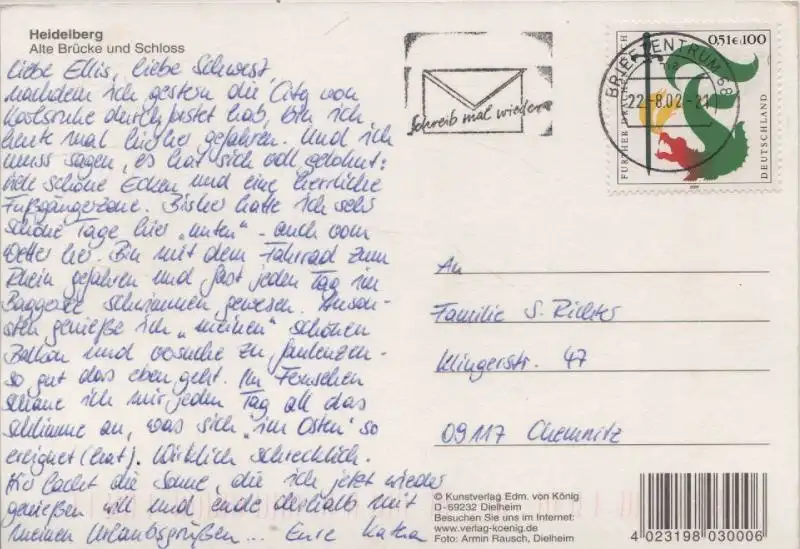 Heidelberg
Alte Brücke und Schloss
Liebe Ellis, liebe Schwest
nachdem ich gestern die City von
Karlsruhe durchgetestet hab, bin ich
heute mal hierher gefahren. Und ich
muss sagen, es hat sich voll gelohnt:
viele schöne Ecken und eine herrliche
Fußgängerzone. Bisher hatte ich sehr
schöne Tage hier „unten" - auch vom
Wetter her. Bin mit dem Fahrrad zum
Rhein gefahren und fast jeden Tag im
Baggersee schwimmen gewesen. Anson-
sten genieße ich „meinen" schönen
Balkon und versuche zu faulenzen -
so gut das eben geht. Im Fernsehen
schaue ich mir jeden Tag all das
Schlimme an, was sich "im Osten" so
ereignet (hat). Wirklich schrecklich.
Hier lacht die Sonne, die ich jetzt wieder
genießen will und ende deshalb mit
meinen Urlaubsgrüßen... Eure Katha
Schreib mal wieder
BRIEFZENTRUM 68
22.-8.02-21
0,51€ 100
FURTHER DRACHENSTICH
DEUTSCHLAND
An
Familie S. Richter
Klingerstr. 47
09117 Chemnitz
© Kunstverlag Edm. von König
D-69232 Dielheim
Besuchen Sie uns im Internet:
www.verlag-koenig.de
Foto: Armin Rausch, Dielheim
4 023198 030006